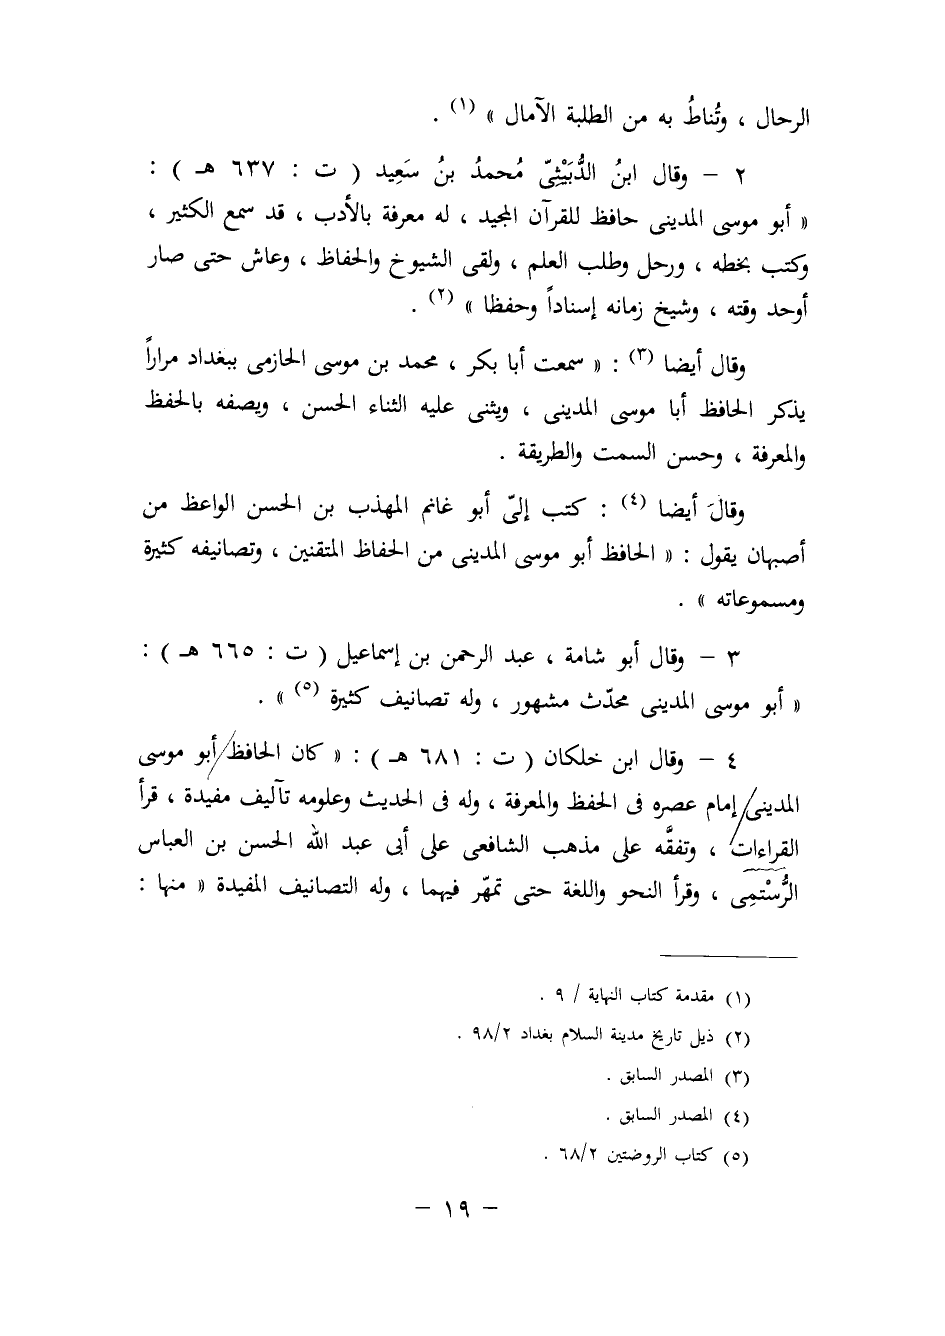 الرحال ، وتُناطُ به من الطلبة الآمال » (١) .
٢ – وقال ابنُ الدُّبَيْثِىّ مُحمدُ بنُ سَعِيد ( ت : ٦٣٧ هـ ) :
« أبو موسى المدينى حافظ للقرآن المجيد ، له معرفة بالأدب ، قد سمع الكثير ،
وكتب بخطه ، ورحل وطلب العلم ، ولقى الشيوخ والحفاظ ، وعاش حتى صار
أوحد وقته ، وشيخ زمانه إسناداً وحفظا » (٢) .
وقال أيضا (٣) : « سمعت أبا بكر ، محمد بن موسى الحازمى ببغداد مراراً
يذكر الحافظ أبا موسى المدينى ، ويثنى عليه الثناء الحسن ، ويصفه بالحفظ
والمعرفة ، وحسن السمت والطريقة .
وقالَ أيضا (٤) : كتب إلىّ أبو غانم المهذب بن الحسن الواعظ من
أصبهان يقول : « الحافظ أبو موسى المدينى من الحفاظ المتقنين ، وتصانيفه كثيرة
ومسموعاته » .
٣ – وقال أبو شامة ، عبد الرحمن بن إسماعيل ( ت : ٦٦٥ هـ ) :
« أبو موسى المدينى محدّث مشهور ، وله تصانيف كثيرة (٥) » .
٤ – وقال ابن خلكان ( ت : ٦٨١ هـ ) : « كان الحافظ أبو موسى
المدينى إمام عصره فى الحفظ والمعرفة ، وله فى الحديث وعلومه تآليف مفيدة ، قرأ
القراءات ، وتفقَّه على مذهب الشافعى على أبى عبد الله الحسن بن العباس
الرُّسْتمِى ، وقرأ النحو واللغة حتى تمهّر فيهما ، وله التصانيف المفيدة « منها :
(١) مقدمة كتاب النهاية / ٩ .
(٢) ذيل تاريخ مدينة السلام بغداد ٩٨/٢ .
(٣) المصدر السابق .
(٤) المصدر السابق .
(٥) كتاب الروضتين ٦٨/٢ .
– ١٩ –